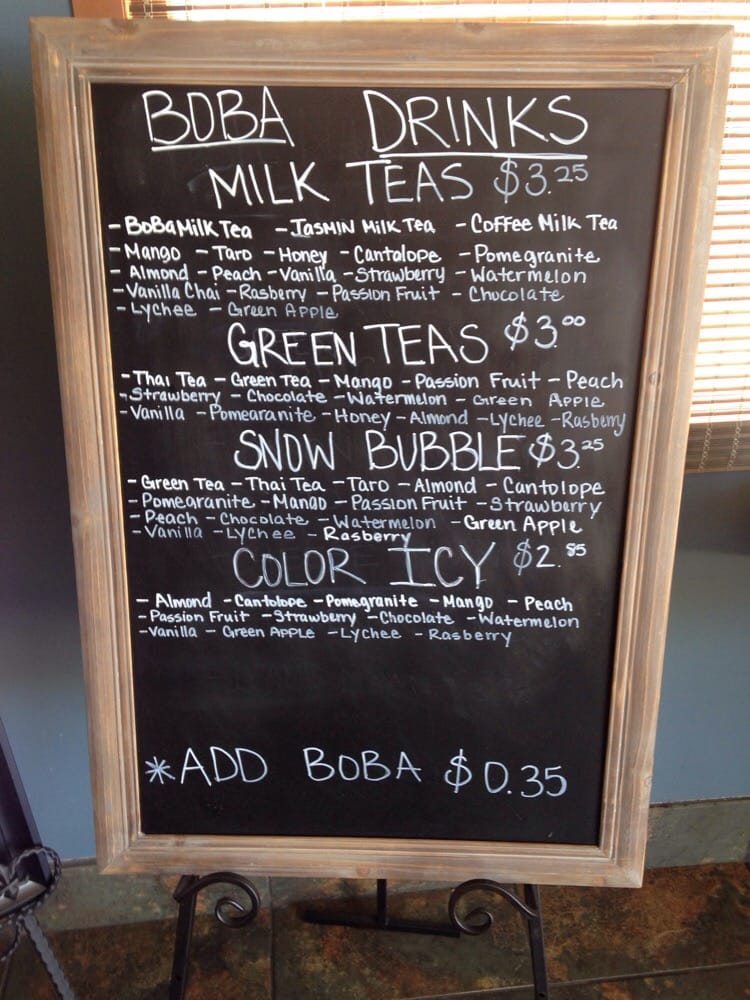 BOBA DRINKS
MILK TEAS $3.25
- BoBa Milk Tea - Jasmin Milk Tea - Coffee Milk Tea
- Mango - Taro - Honey - Cantalope - Pomegranite
- Almond - Peach - Vanilla - Strawberry - Watermelon
- Vanilla Chai - Rasberry - Passion Fruit - Chocolate
- Lychee - Green Apple
GREEN TEAS $3.00
- Thai Tea - Green Tea - Mango - Passion Fruit - Peach
- Strawberry - Chocolate - Watermelon - Green Apple
- Vanilla - Pomearanite - Honey - Almond - Lychee - Rasberry
SNOW BUBBLE $3.25
- Green Tea - Thai Tea - Taro - Almond - Cantolope
- Pomegranite - Mango - Passion Fruit - Strawberry
- Peach - Chocolate - Watermelon - Green Apple
- Vanilla - Lychee - Rasberry
COLOR ICY $2.85
- Almond - Cantolope - Pomegranite - Mango - Peach
- Passion Fruit - Strawberry - Chocolate - Watermelon
- Vanilla - Green Apple - Lychee - Rasberry
*ADD BOBA $0.35